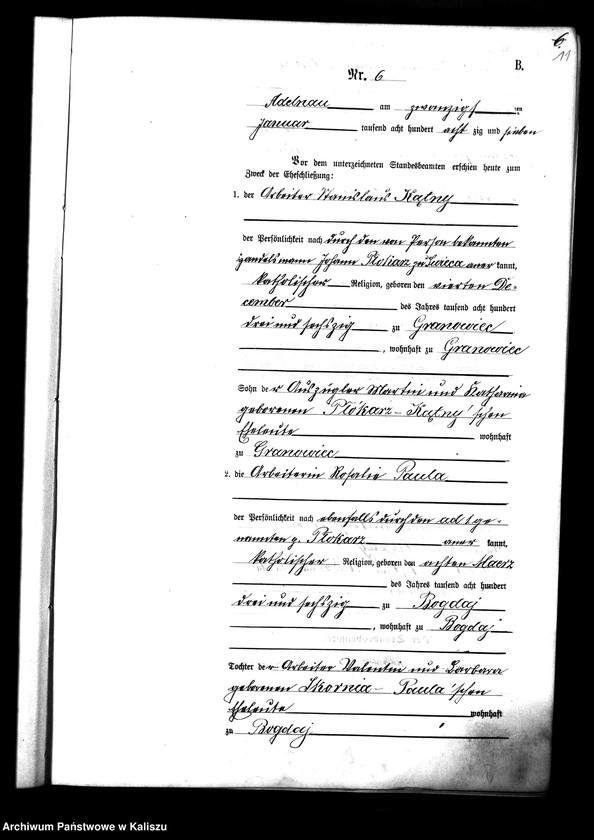 6
11
B.
Nr. 6
Adelnau am zwanzigsten
Januar tausend acht hundert acht zig und sieben
Vor dem unterzeichneten Standesbeamten erschien heute zum
Zweck der Eheschließung:
1. der Arbeiter Stanislaus Kątny
der Persönlichkeit nach durch den von Person bekannten
Handelsmann Johann Płókarz zu aner kannt,
katholischer Religion, geboren den vierten De-
cember des Jahres tausend acht hundert
drei und sechszig zu Granowiec
, wohnhaft zu Granowiec
Sohn der Auszügler Martin und Katharina
geborenen Płókarz - Kątny'schen
Eheleute wohnhaft
zu Granowiec
2. die Arbeiterin Rosalie Paula
der Persönlichkeit nach ebenfalls durch den ad 1 ge-
nannten p. Płokarz aner kannt,
katholischer Religion, geboren den achten Maerz
des Jahres tausend acht hundert
drei und sechszig zu Bogdaj
, wohnhaft zu Bogdaj
Tochter der Arbeiter Valentin und Barbara
geborenen Skornia - Paula'schen
Eheleute wohnhaft
zu Bogdaj
Archiwum Państwowe w Kaliszu